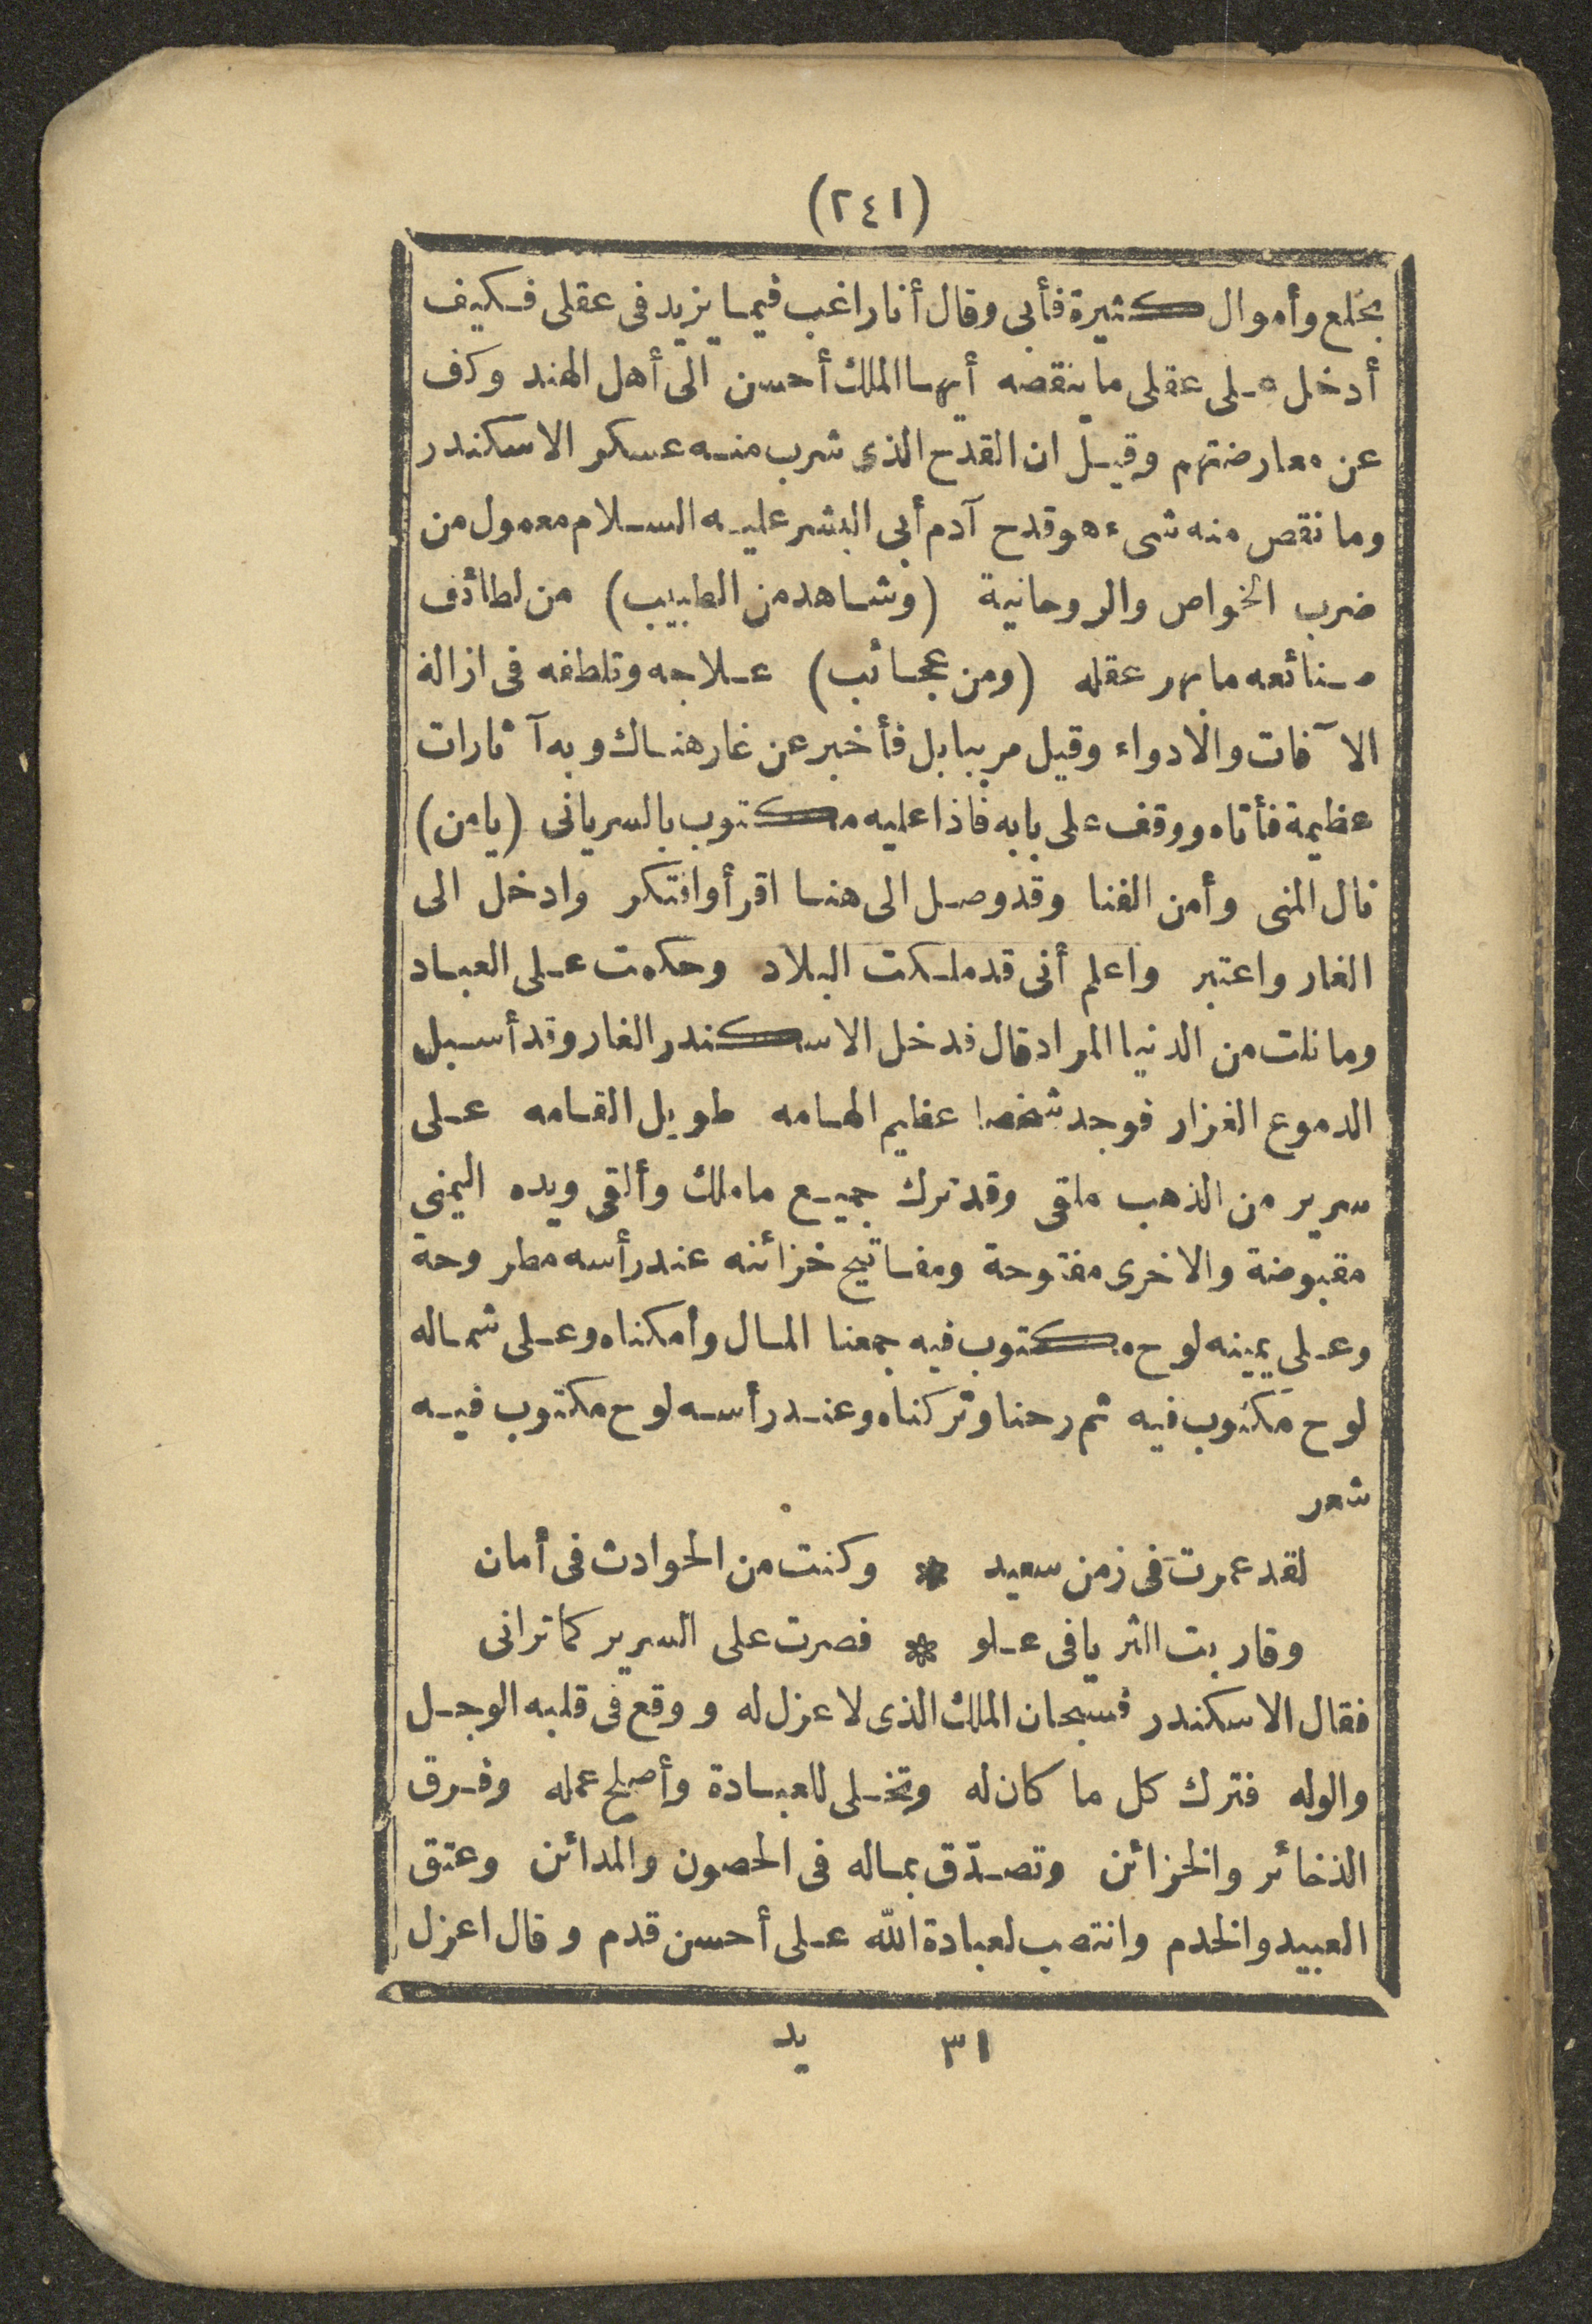 (٢٤١)
بخلع وأموال كثيرة فأبى وقال أنا راغب فيما يزيد فى عقلى فكيف
أدخل على عقلى ما ينقصه أيها الملك أحسن الى أهل الهند وكف
عن معارضتهم وقيل ان القدح الذى شرب منه عسكر الاسكندر
وما نقص منه شىء هو قدح آدم أبى البشر عليه السلام معمول من
ضرب الخواص والروحانية (وشاهد من الطبيب) من لطائف
صنائعه ما بهر عقله (ومن عجائب) علاجه وتلطفه فى ازالة
الآفات والادواء وقيل مر ببابل فأخبر عن غار هناك وبه آثارات
عظيمة فأتاه ووقف على بابه فاذا عليه مكتوب بالسريانى (يا من)
نال المنى وأمن الفنا وقد وصل الى هنا اقرأ وافتكر وادخل الى
الغار واعتبر واعلم أنى قد ملكت البلاد وحكمت على العباد
وما نلت من الدنيا المراد قال فدخل الاسكندر الغار وقد أسبل
الدموع الغزار فوجد شخصا عظيم الهامه طويل القامه على
سرير من الذهب ملقى وقد ترك جميع ما ملك وألقى ويده اليمنى
مقبوضة والاخرى مفتوحة ومفاتيح خزائنه عند رأسه مطروحة
وعلى يمينه لوح مكتوب فيه جمعنا المال وأمكناه وعلى شماله
لوح مكتوب فيه ثم رحنا وتركناه وعند رأسه لوح مكتوب فيه
شعر
لقد عمرت فى زمن سعيد * وكنت من الحوادث فى أمان
وقاربت الثريا فى علو * فصرت على السرير كما ترانى
فقال الاسكندر فسبحان الملك الذى لا عزل له ووقع فى قلبه الوجل
والوله فترك كل ما كان له وتخلى للعبادة وأصلح عمله وفرق
الذخائر والخزائن وتصدّق بماله فى الحصون والمدائن وعتق
العبيد والخدم وانتصب لعبادة الله على أحسن قدم وقال اعزل
٣١ يد